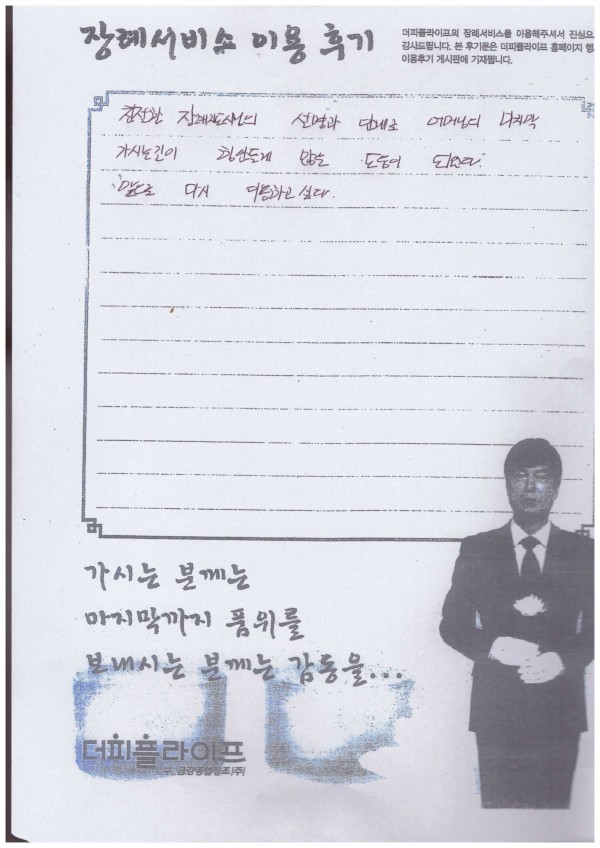 장례서비스 이용 후기
더피플라이프의 장례서비스를 이용해주셔서 진심으
감사드립니다. 본 후기문은 더피플라이프 홈페이지 행
이용후기 게시판에 기재됩니다.
장례지도사님의 설명과 안내로 어머님의 마지막
가시는길이 힘안들게 많은 도움이 되었어요.
앞으로 다시 이용하고 싶다.
가시는 분께는
마지막까지 품위를
보내시는 분께는 감동을...
더피플라이프
구.금강종합상조(주)